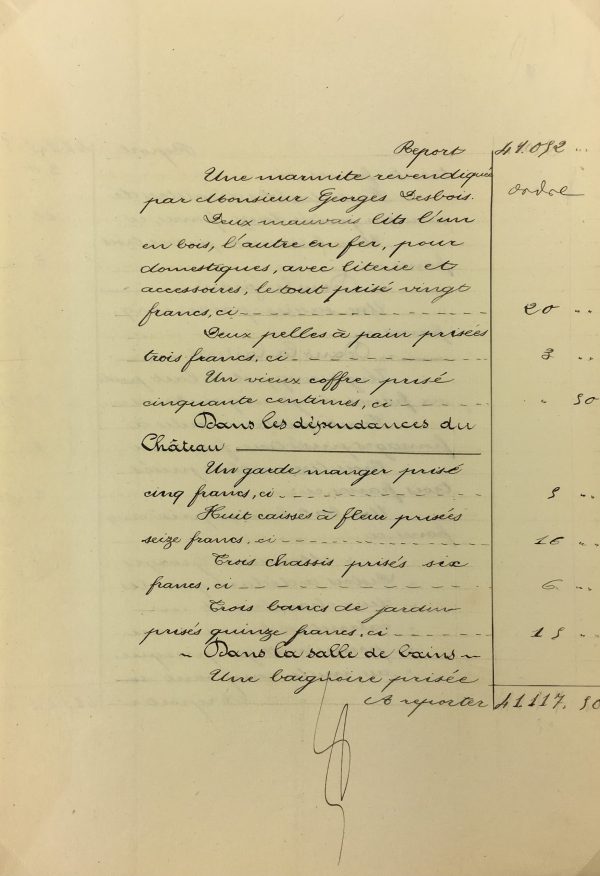 Report 41.052 "
Une marmite revendiquée
par Monsieur Georges Desbois. ordre
Deux mauvais lits l'un
en bois, l'autre en fer, pour
domestiques, avec literie et
accessoires, le tout prisé vingt
francs, ci 20 "
Deux pelles à pain prisées
trois francs, ci 3 "
Un vieux coffre prisé
cinquante centimes, ci " 50
Dans les dépendances du
Château
Un garde manger prisé
cinq francs, ci 5 "
Huit caisses à fleur prisées
seize francs, ci 16 "
Trois chassis prisés six
francs, ci 6 "
Trois bancs de jardin
prisés quinze francs, ci 15 "
- Dans la salle de bains -
Une baignoire prisée
A reporter 41117. 50